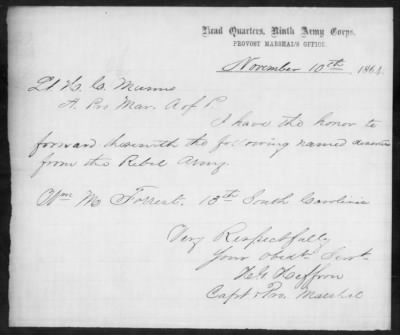 Head Quarters, Ninth Army Corps,
PROVOST MARSHAL'S OFFICE.
November 10th 1864.
Lt H. C. 
A. Pro Mar. A of P
I have the honor to
forward herewith the following named deserter
from the Rebel Army.
Wm M Forrest. 13th South Carolina
Very Respectfully
Your Obedt Servt
Heffron
Capt & Pro. Marshal